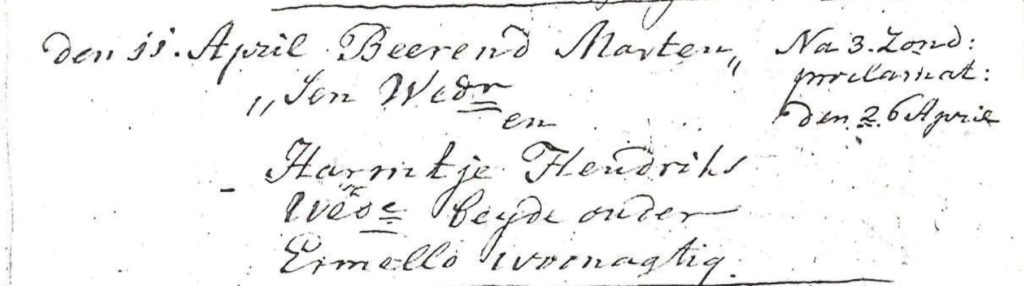 den 11. April Beerend Marten„
„sen Wedr
en
Harmtje Hendriks
Wede beyde onder
Ermello woonagtig.
Na 3. Zond:
proclamat:
den 26 April